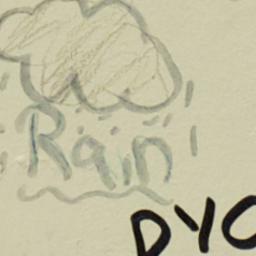 Rain
DYO